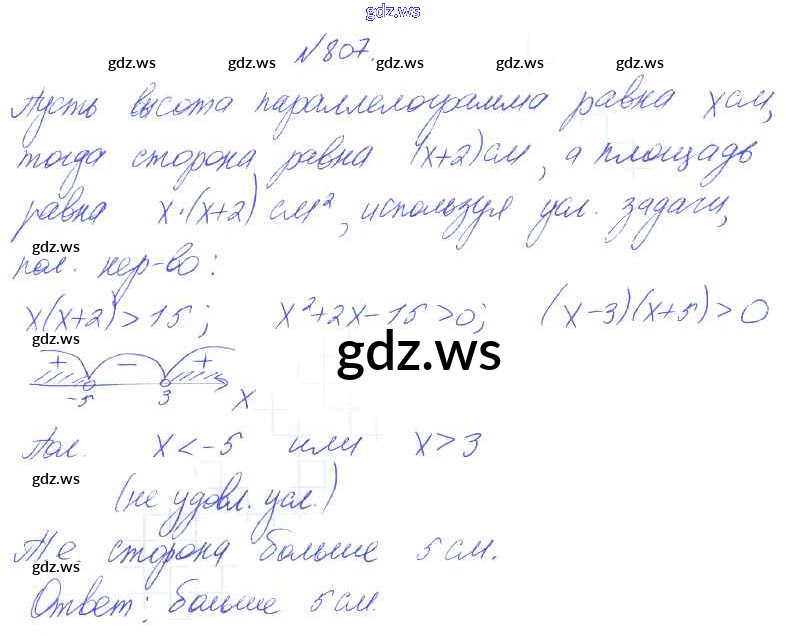 gdz.ws
№807.
gdz.ws gdz.ws gdz.ws gdz.ws gdz.ws
Пусть высота параллелограмма равна x см,
тогда сторона равна (x+2) см, а площадь
равна x·(x+2) см², используя усл. задачи,
gdz.ws
пол. нер-во:
x(x+2)>15; x²+2x-15>0; (x-3)(x+5)>0
gdz.ws
gdz.ws
+ - +
-5 3 x
Пол. x<-5 или x>3
gdz.ws
(не удовл. усл.)
Т.е. сторона больше 5 см.
gdz.ws
Ответ: больше 5 см.